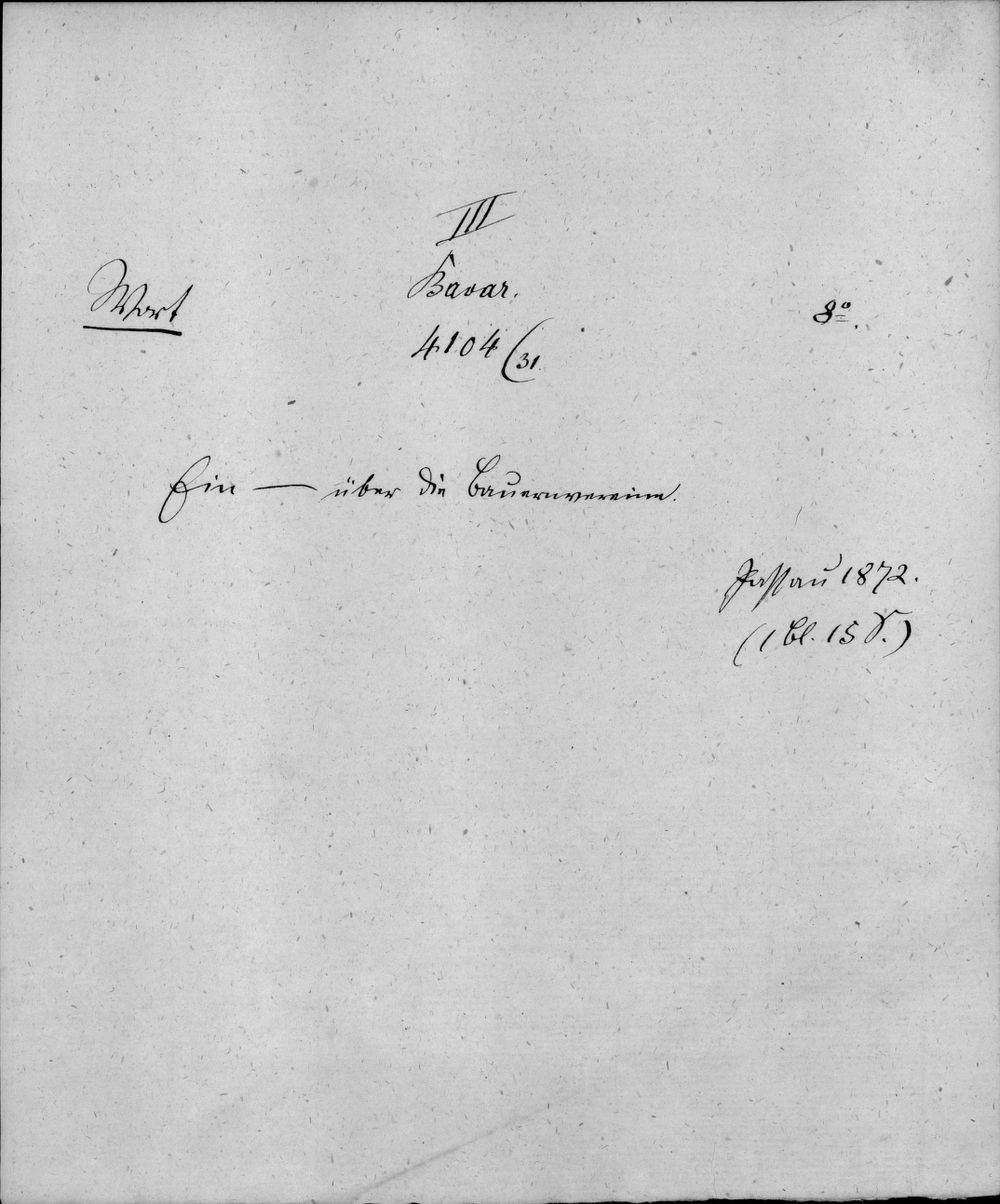 III
Wort
Bavar.
8º.
4104 (31.
Ein — über die Bauernvereine.
Passau 1872.
(1 Bl. 15 S.)